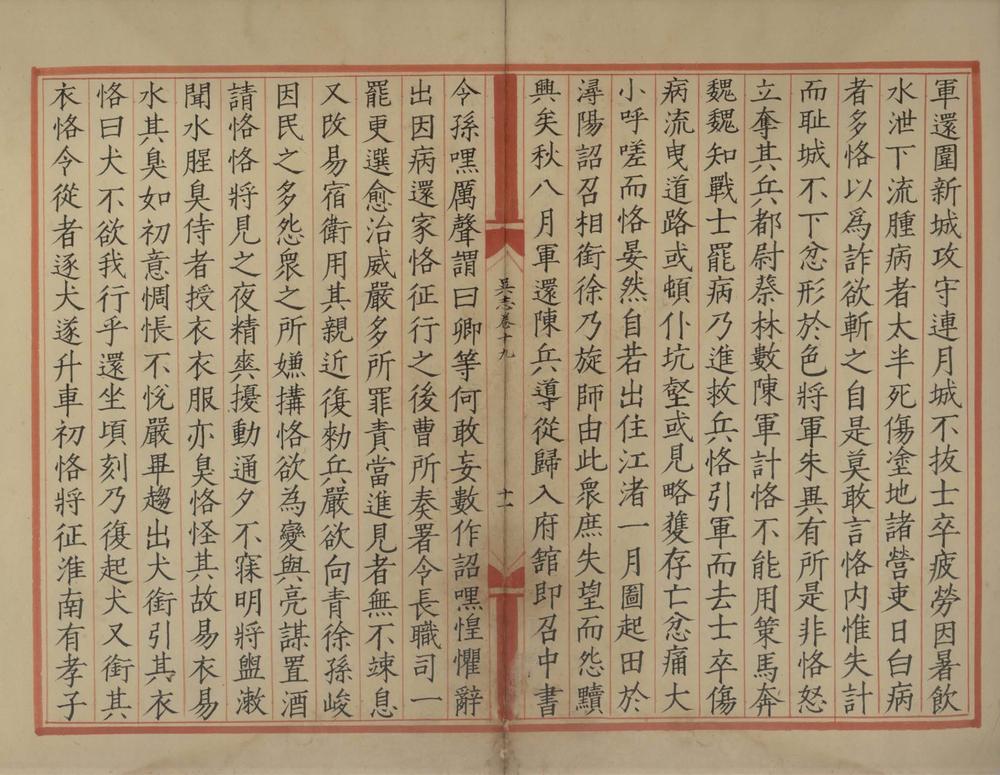 軍還圍新城攻守連月城不拔士卒疲勞因暑飲
水泄下流腫病者太半死傷塗地諸營吏日白病
者多恪以為詐欲斬之自是莫敢言恪內惟失計
而耻城不下忿形於色將軍朱異有所是非恪怒
立奪其兵都尉蔡林數陳軍計恪不能用策馬奔
魏魏知戰士罷病乃進救兵恪引軍而去士卒傷
病流曳道路或頓仆坑壑或見略獲存亡忿痛大
小呼嗟而恪晏然自若出住江渚一月圖起田於
潯陽詔召相銜徐乃旋師由此衆庶失望而怨黷
興矣秋八月軍還陳兵導從歸入府館即召中書
吳志卷十九
十一
令孫嘿厲聲謂曰卿等何敢妄數作詔嘿惶懼辭
出因病還家恪征行之後曹所奏署令長職司一
罷更選愈治威嚴多所罪責當進見者無不竦息
又改易宿衛用其親近復勑兵嚴欲向青徐孫峻
因民之多怨衆之所嫌搆恪欲為變與亮謀置酒
請恪恪將見之夜精爽擾動通夕不寐明將盥漱
聞水腥臭侍者授衣衣服亦臭恪怪其故易衣易
水其臭如初意惆悵不悅嚴畢趨出犬銜引其衣
恪曰犬不欲我行乎還坐頃刻乃復起犬又銜其
衣恪令從者逐犬遂升車初恪將征淮南有孝子